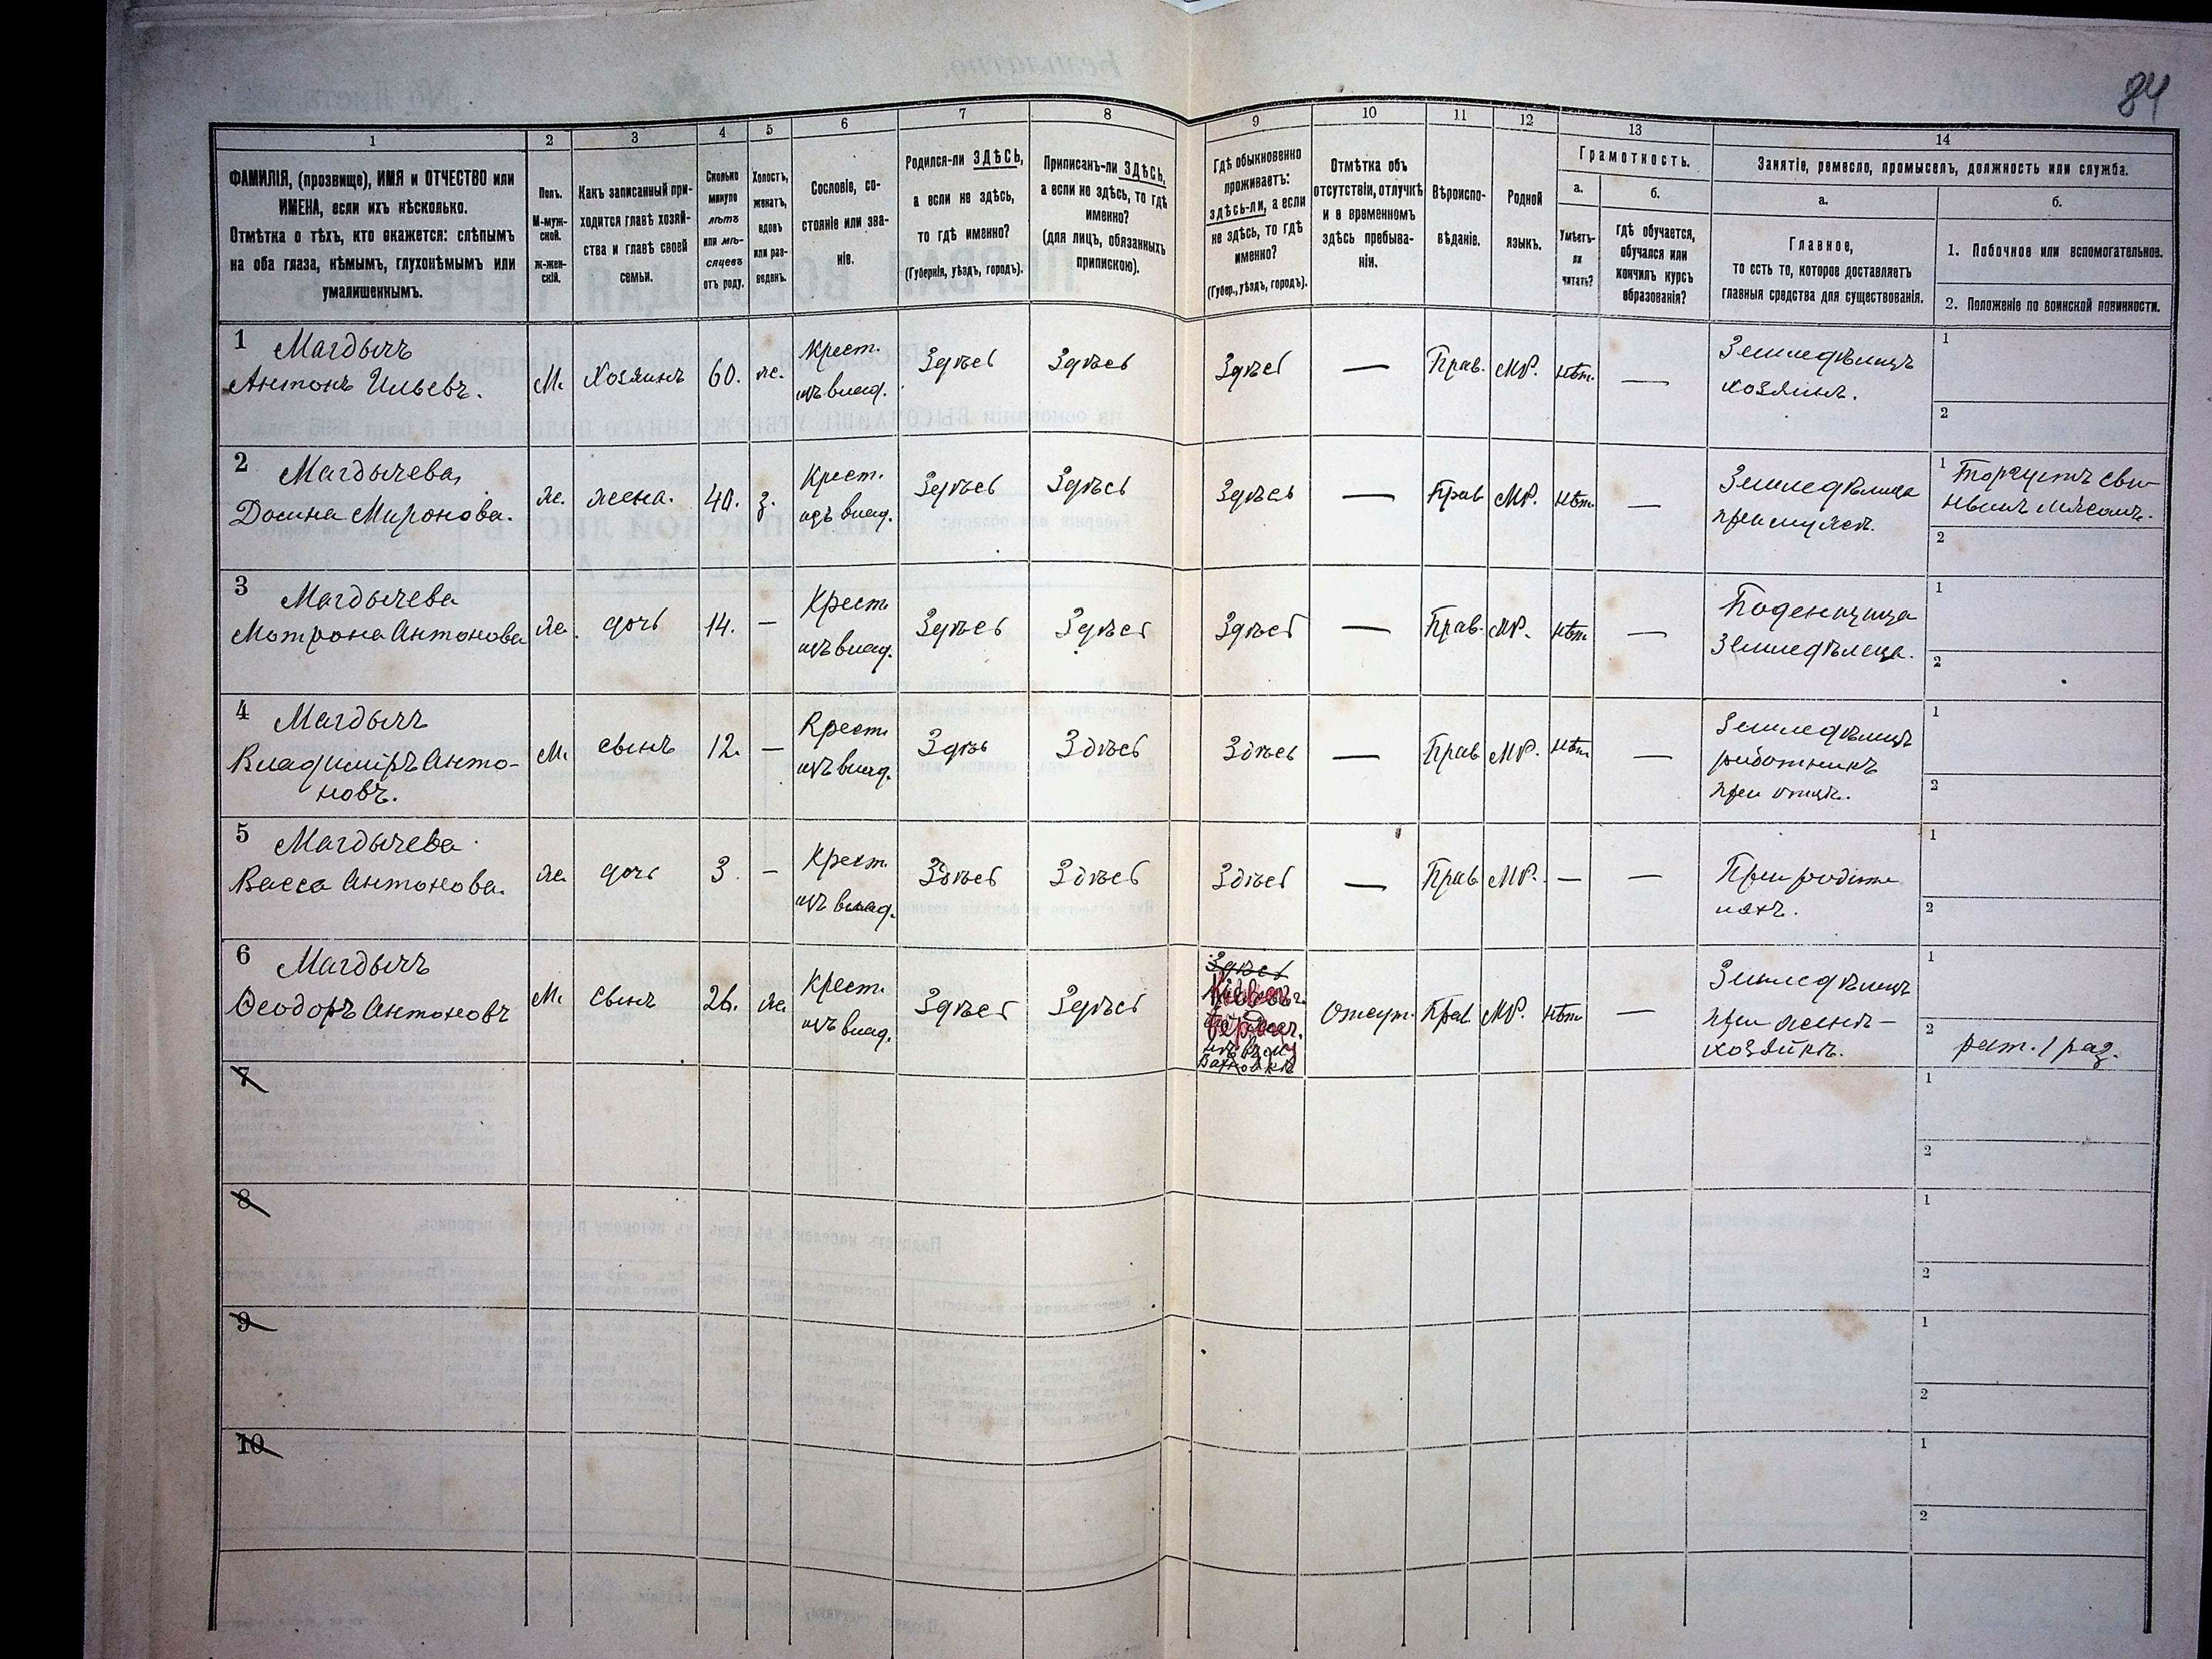 84
1
2
3
4
5
6
7
8
9
10
11
12
13
14
ФАМИЛІЯ, (прозвище), ИМЯ и ОТЧЕСТВО или
ИМЕНА, если ихъ нѣсколько.
Отмѣтка о тѣхъ, кто окажется: слѣпымъ
на оба глаза, нѣмымъ, глухонѣмымъ или
умалишеннымъ.
Полъ.
М-муж-
ской.
Ж-жен-
скій.
Какъ записанный при-
ходится главѣ хозяй-
ства и главѣ своей
семьи.
Сколько
минуло
лѣтъ
или мѣ-
сяцевъ
отъ роду.
Холостъ,
женатъ,
вдовъ
или раз-
веденъ.
Сословіе, со-
стояніе или зва-
ніе.
Родился-ли ЗДѢСЬ,
а если не здѣсь,
то гдѣ именно?
(Губернія, уѣздъ, городъ).
Приписанъ-ли ЗДѢСЬ,
а если не здѣсь, то гдѣ
именно?
(для лицъ, обязанныхъ
припискою).
Гдѣ обыкновенно
проживаетъ:
здѣсь-ли, а если
не здѣсь, то гдѣ
именно?
(Губер., уѣздъ, городъ).
Отмѣтка объ
отсутствіи, отлучкѣ
и о временномъ
здѣсь пребыва-
ніи.
Вѣроиспо-
вѣданіе.
Родной
языкъ.
Грамотность.
а.
Умѣетъ-
ли
читать?
б.
гдѣ обучается,
обучался или
кончилъ курсъ
образованія?
Занятіе, ремесло, промыселъ, должность или служба.
а.
Главное,
то есть то, которое доставляетъ
главныя средства для существованія.
б.
1. Побочное или вспомогательное.
2. Положеніе по воинской повинности.
1 Магдычъ
Антонъ Ильевъ.
М.
Хозяинъ
60.
ж.
Крест.
изъ влад.
Здѣсь
Здѣсь
Здѣсь
—
Прав.
МР.
нѣт.
—
Земледѣлецъ
хозяинъ.
1
2
2 Магдычева,
Домна Миронова.
ж.
жена.
40.
з.
Крест.
изъ влад.
Здѣсь
Здѣсь
Здѣсь
—
Прав
МР.
нѣт.
—
Земледѣлица
при мужѣ.
1 Торгуетъ сви-
нымъ мясомъ.
2
3 Магдычева
Мотрона Антонова
ж.
дочь
14.
—
Крест.
изъ влад.
Здѣсь
Здѣсь
Здѣсь
—
Прав.
МР.
нѣт
—
Поденщица
Земледѣлица.
1
2
4 Магдычъ
Владиміръ Анто-
новъ.
М.
сынъ
12.
—
Крест.
изъ влад.
Здѣсь
Здѣсь
Здѣсь
—
Прав
МР.
нѣт
—
Земледѣлецъ
работникъ
при отцѣ.
1
2
5 Магдычева
Васса Антонова.
ж.
дочь
3.
—
Крест.
изъ влад.
Здѣсь
Здѣсь
Здѣсь
—
Прав
МР.
—
—
При родите
ляхъ.
1
2
6 Магдычъ
Ѳеодоръ Антоновъ
М.
Сынъ
26.
ж
Крест.
изъ влад.
Здѣсь
Здѣсь
Здѣсь
Отсут.
Прав
МР.
нѣт
—
Земледѣлецъ
при женѣ-
хозяйкѣ.
1
2 рат. 1 раз.
7
1
2
8
1
2
9
1
2
10
1
2